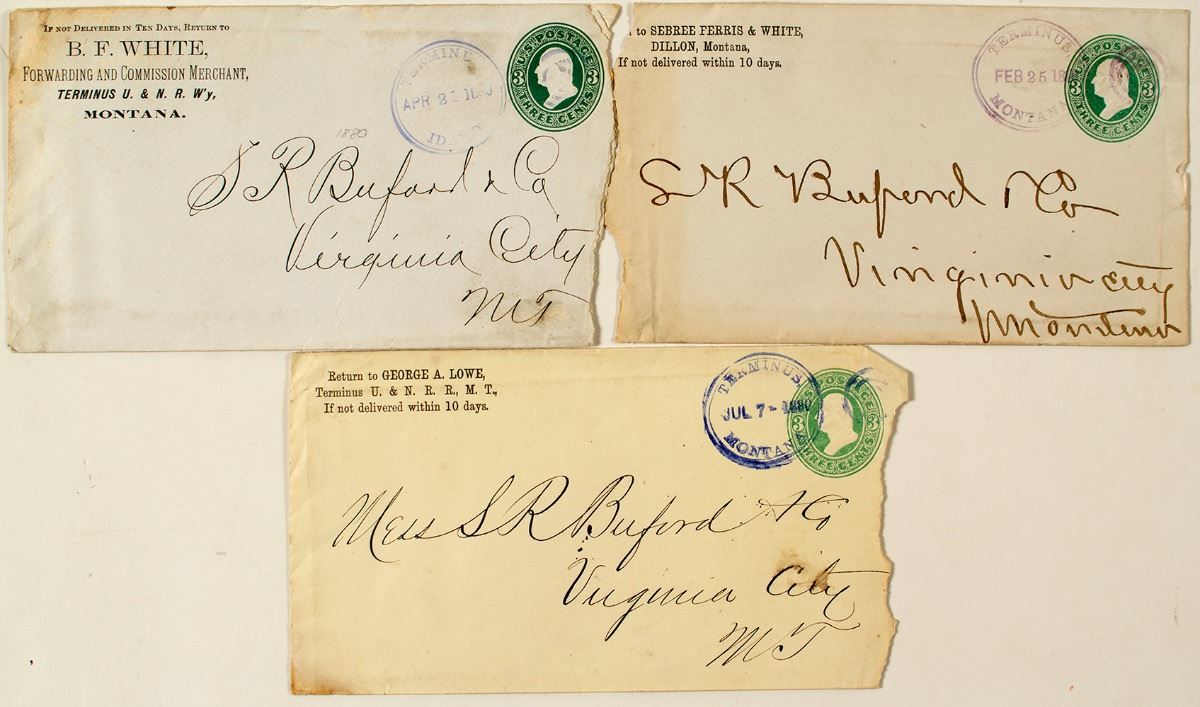 IF NOT DELIVERED IN TEN DAYS, RETURN TO
B. F. WHITE,
FORWARDING AND COMMISSION MERCHANT,
TERMINUS U. & N. R. W'y,
MONTANA.
U.S. POSTAGE
3 3
THREE CENTS
TERMINU
APR 2
ID
1880
S R Buford & Co
Virginia City
MT
to SEBREE FERRIS & WHITE,
DILLON, Montana,
If not delivered within 10 days.
TERMINUS
FEB 25 18
MONTANA
POSTAGE
3 3
THREE CENTS
S R Buford & Co
Virginia city
Montana
Return to GEORGE A. LOWE,
Terminus U. & N. R. R., M. T.,
If not delivered within 10 days.
TERMINUS
JUL 7 - 1880
MONTANA
POSTAGE
3 3
THREE CENTS
Mess S R Buford & Co
Virginia City
MT